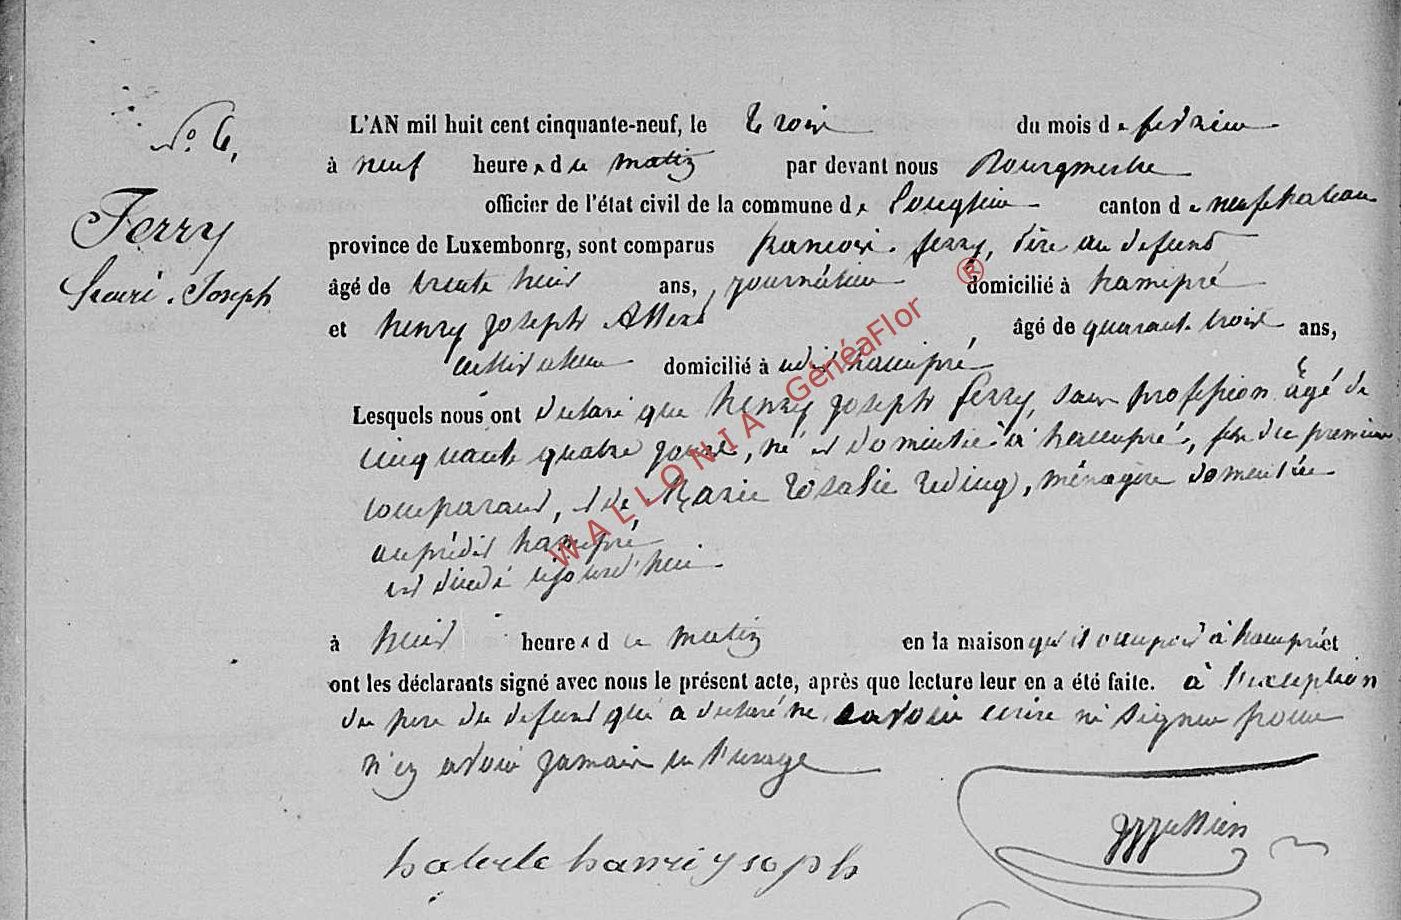 N° 6,
Ferry
Henri Joseph
L'AN mil huit cent cinquante-neuf, le trois du mois de fevrier
à neuf heures du matin par devant nous Bourgmestre
officier de l'état civil de la commune de Longlier canton de neufchateau
province de Luxembourg, sont comparus francois ferry, père du defunt
âgé de trente huit ans, journalier domicilié à hamipré
et henry joseph âgé de quarante trois ans,
cultivateur domicilié à udit hamipré
Lesquels nous ont declaré que henry joseph ferry, sans profession âgé de
cinquante quatre jours, né et domicilié à hamipré, fils du premier
comparant, et de Marie rosalie, ménagère domiciliée
au prédit hamipré
est décédé aujourd'hui
à huit heures du matin en la maison qu'il occupoit à hamipré et
ont les déclarants signé avec nous le présent acte, après que lecture leur en a été faite. à l'exception
du pere du defunt qui a declaré ne savoir ecrire ni signer pour
n'en avoir jamais eu l'usage
hanri joseph
WALLONIA GenéaFlor ®